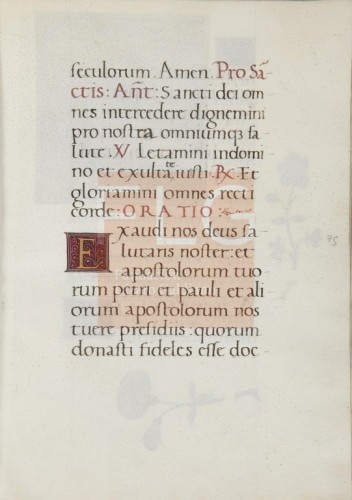 seculorum. Amen. Pro Sā
ctis: Añt: Sancti dei om
nes intercedere dignemini
pro nostra omniumq3 sa
lute. V Letamini indomi
no et exulta te iusti. Rx. Et
gloriamini omnes recti
corde: ORATIO:
Exaudi nos deus sa
lutaris noster: et
apostolorum tuo
rum petri et pauli et ali
orum apostolorum nos
tuere presidiis: quorum
donasti fideles esse doc-
75
FLG